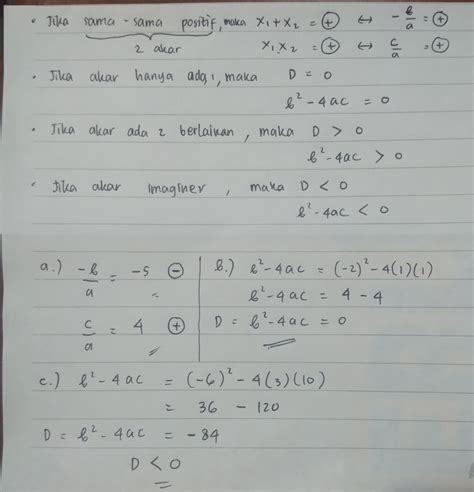 • Jika sama-sama positif, maka x₁ + x₂ = ⊕ ↔ -b/a = ⊕
2 akar x₁x₂ = ⊕ ↔ c/a = ⊕
• Jika akar hanya ada 1, maka D = 0
b² - 4ac = 0
• Jika akar ada 2 berlainan, maka D > 0
b² - 4ac > 0
• Jika akar imaginer, maka D < 0
b² - 4ac < 0
a.) -b/a = -5 ⊖
c/a = 4 ⊕
b.) b² - 4ac = (-2)² - 4(1)(1)
b² - 4ac = 4 - 4
D = b² - 4ac = 0
c.) b² - 4ac = (-6)² - 4(3)(10)
= 36 - 120
D = b² - 4ac = -84
D < 0